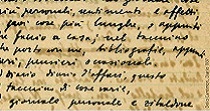 più personali, sentimenti ed affetti,
poi cose più lunghe, o appunti
in casa; nel taccuino
che porto con me, bibliografie, appunti
vari, pensieri occasionali.
Diario diario d'affari, questo
taccuino di cose varie,
giornale personale e zibaldone